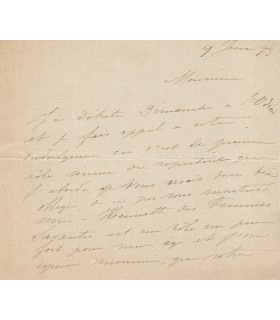 9 Juin 79
Monsieur
Je débute Dimanche à l'Odéon
et je fais appel à votre
indulgence car c'est le premier
rôle du répertoire que
j'aborde je vous serais donc bien
obligée de ne pas vous montrer
Henriette des Femmes
Savantes est un rôle un peu
fort pour mon age et j'ose
espérer monsieur, que votre